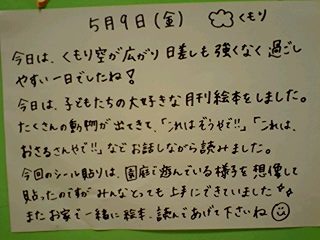 5月9日(金) くもり
今日は、くもり空が広がり日差しも強くなく過ごし
やすい一日でしたね!
今日は、子どもたちの大好きな月刊絵本をしました。
たくさんの動物が出てきて、「これはぞうやで!!」「これは、
おさるさんやで!!」などお話しながら読みました。
今回のシール貼りは、園庭で遊んでいる様子を想像して
貼ったのですがみんなとっても上手にできていました
またお家で一緒に絵本、読んであげて下さいね